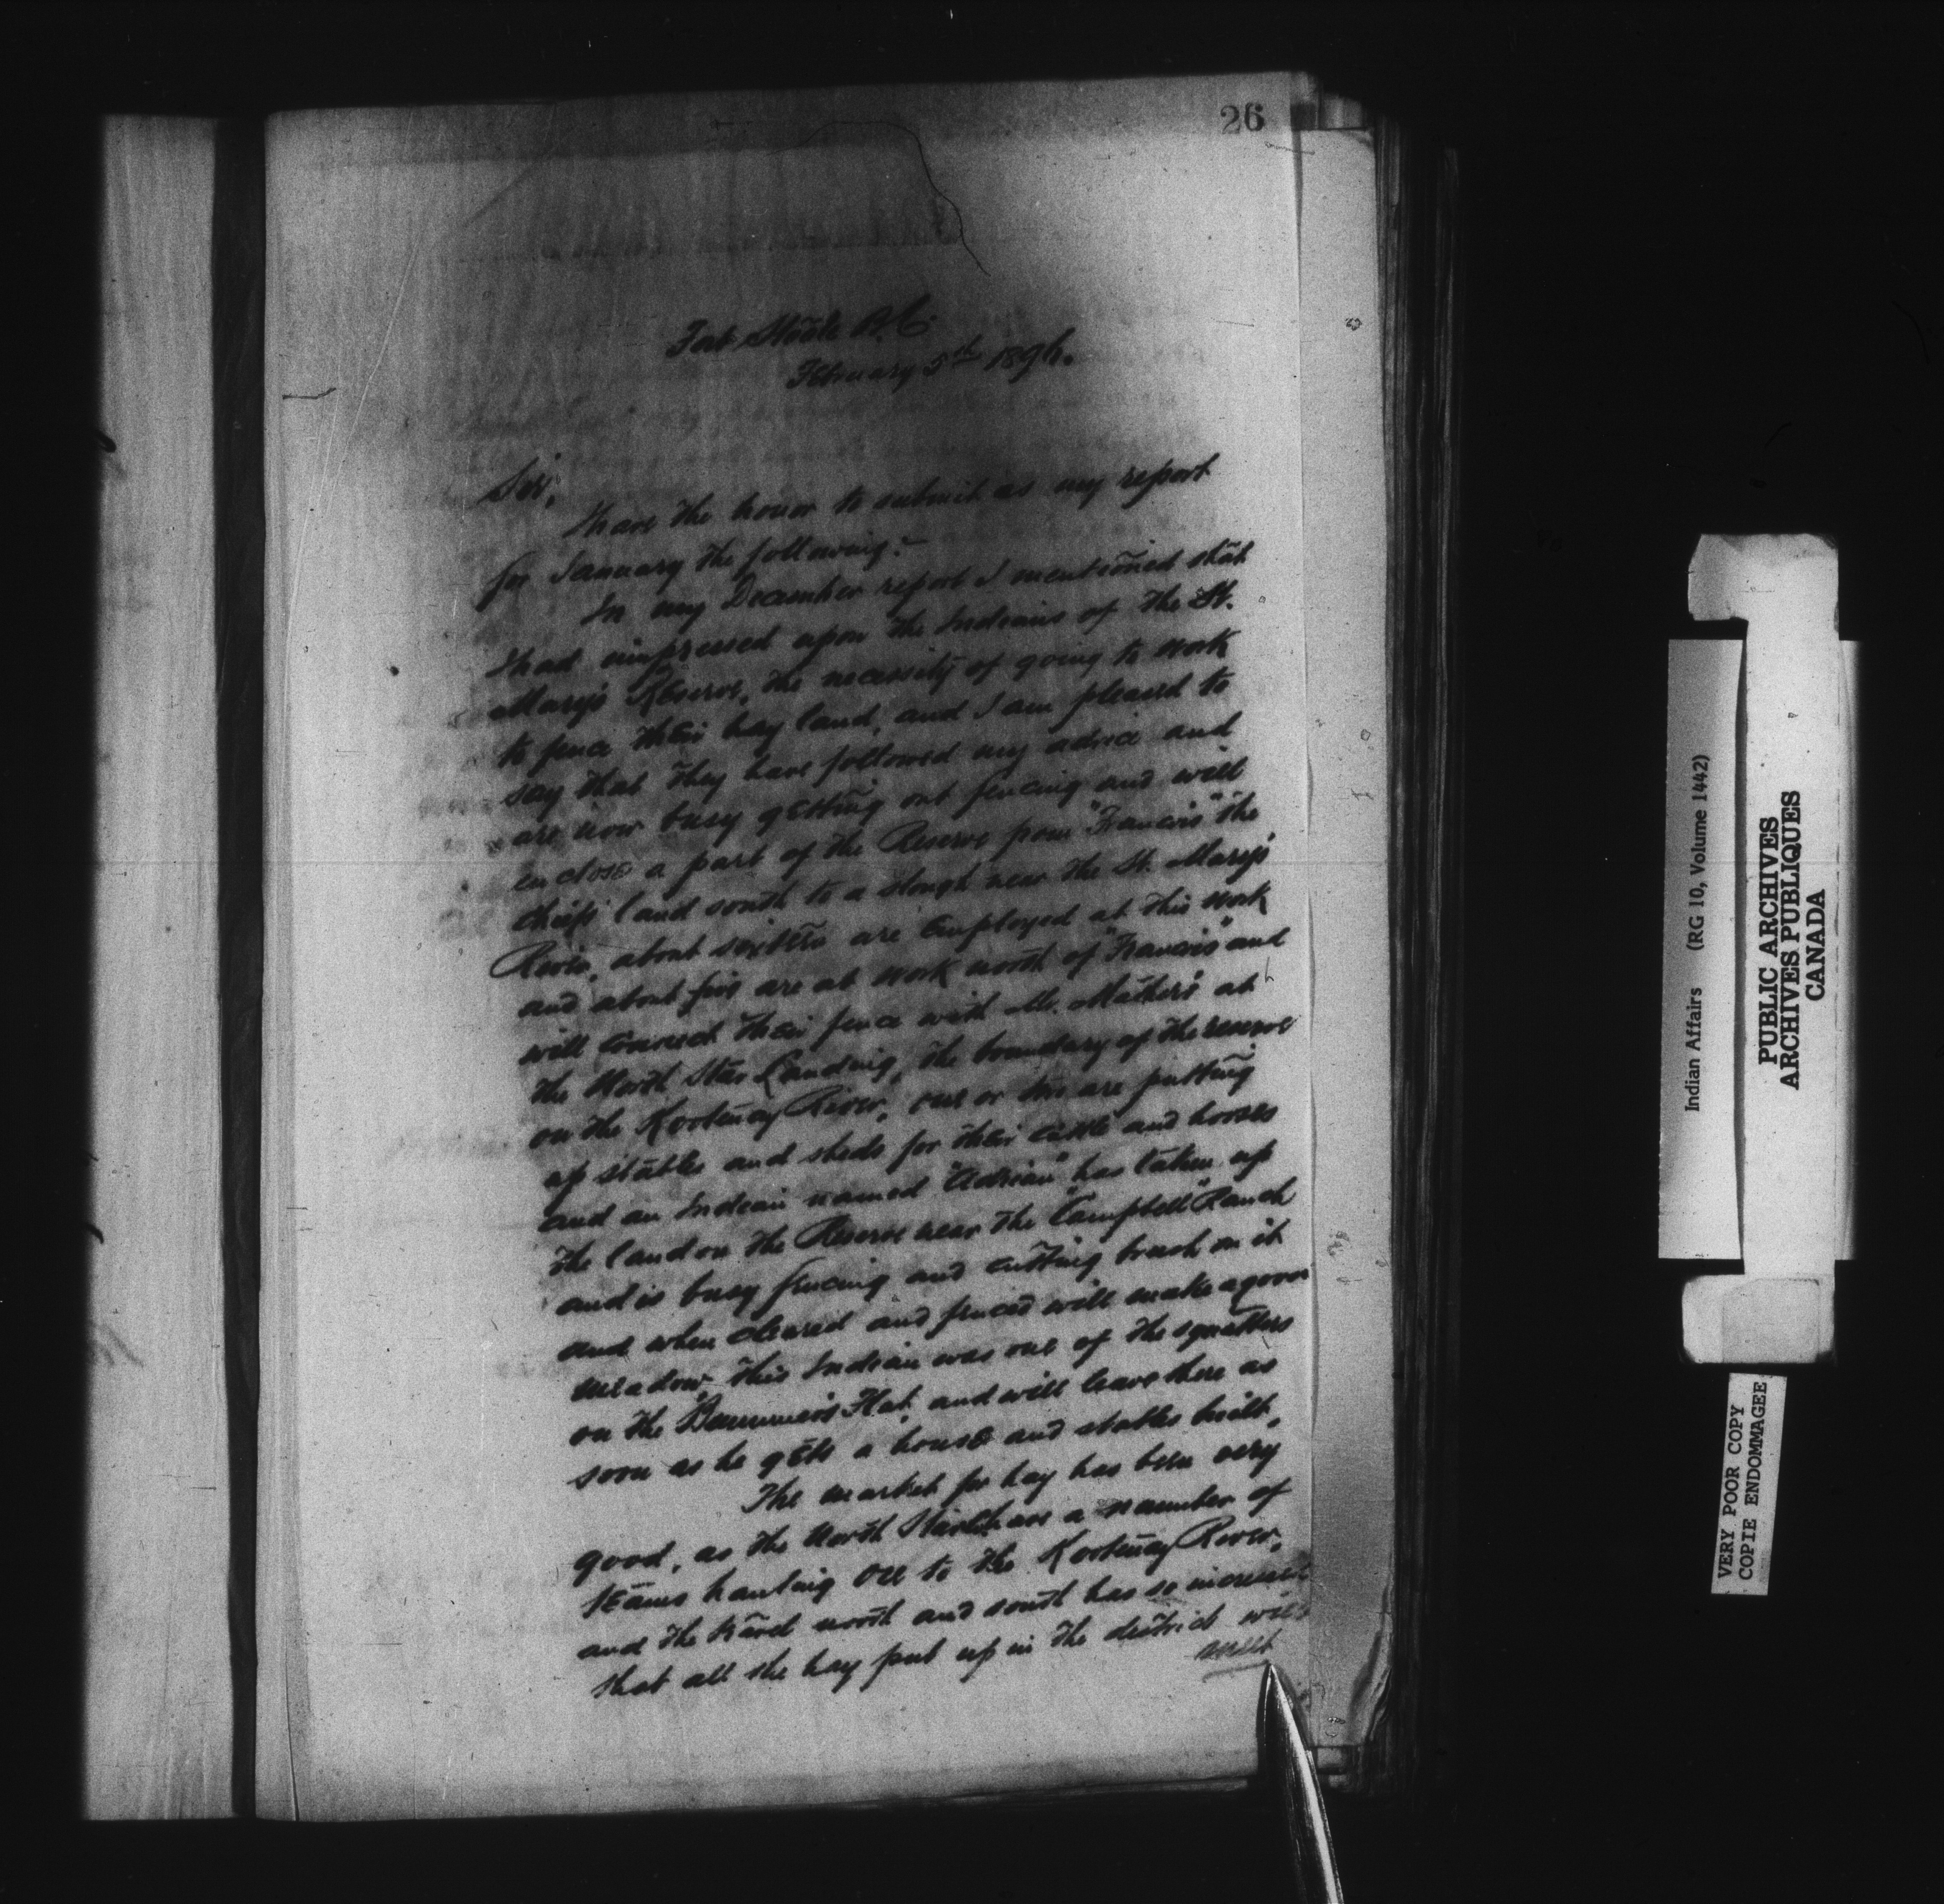 26
Fort Steele B.C.
February 5th 1896.
Sir,
I have the honor to submit as my report
for January the following:-
In my December report I mentioned that
I had impressed upon the Indians of the St.
Mary's Reserve, the necessity of going to work
to fence their hay land, and I am pleased to
say that they have followed my advice and
are now busy getting out fencing and will
enclose a part of the Reserve from "Francis" the
chief's land south to a slough near the St. Mary's
River, about sixteen are employed at this work
and about five are at work north of "Francis" and
will connect their fence with Mr. Mather's at
the North Star Landing, the boundary of the reserve
on the Kootenay River, one or two are putting
up stables and sheds for their cattle and horses
and an Indian named "Adrian" has taken up
the land on the Reserve near the "Campbell" Ranch
and is busy fencing and cutting brush on it
and when cleared and fenced will make a good
meadow, this Indian was one of the squatters
on the Flat, and will leave there as
soon as he gets a house and stables built.
The market for hay has been very
good, as the North Star have a number of
teams hauling ore to the Kootenay River,
and the travel north and south has so increased
that all the hay put up in the district will
meet
Indian Affairs (RG 10, Volume 1442)
PUBLIC ARCHIVES
ARCHIVES PUBLIQUES
CANADA
VERY POOR COPY
COPIE ENDOMMAGEE